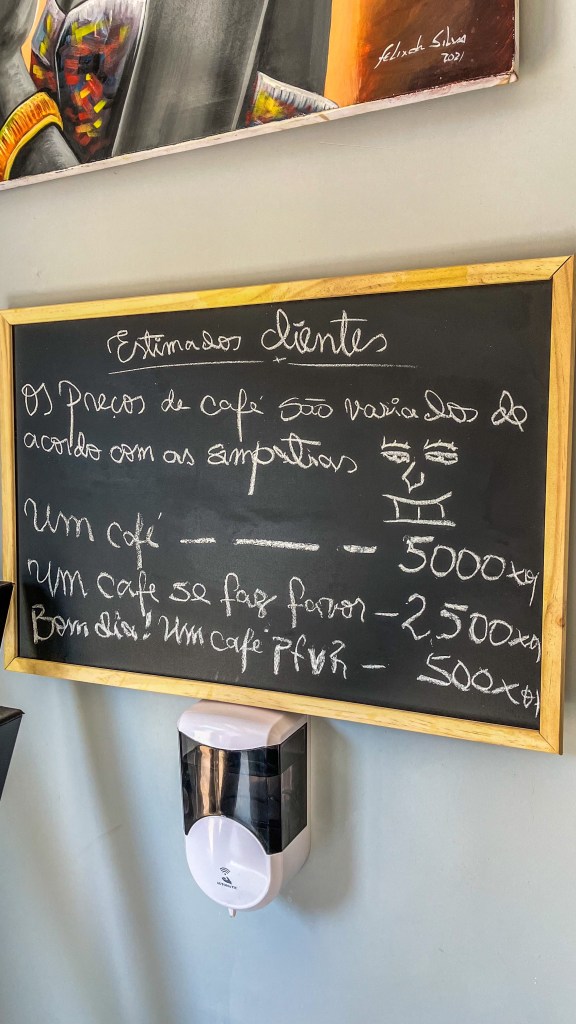 felix da Silva
2021
Estimados clientes
Os Preços de café são variados de
acordo com as simpatias
Um café - - - 5000
Um café se faz favor - 2.500
Bom dia! Um café Pfvr - 500